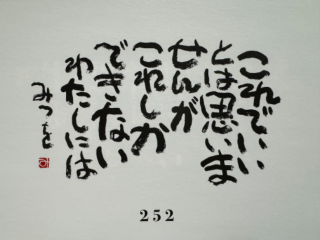 これでいい
とは思いま
せんが
これしか
できない
わたしには
みつを
252